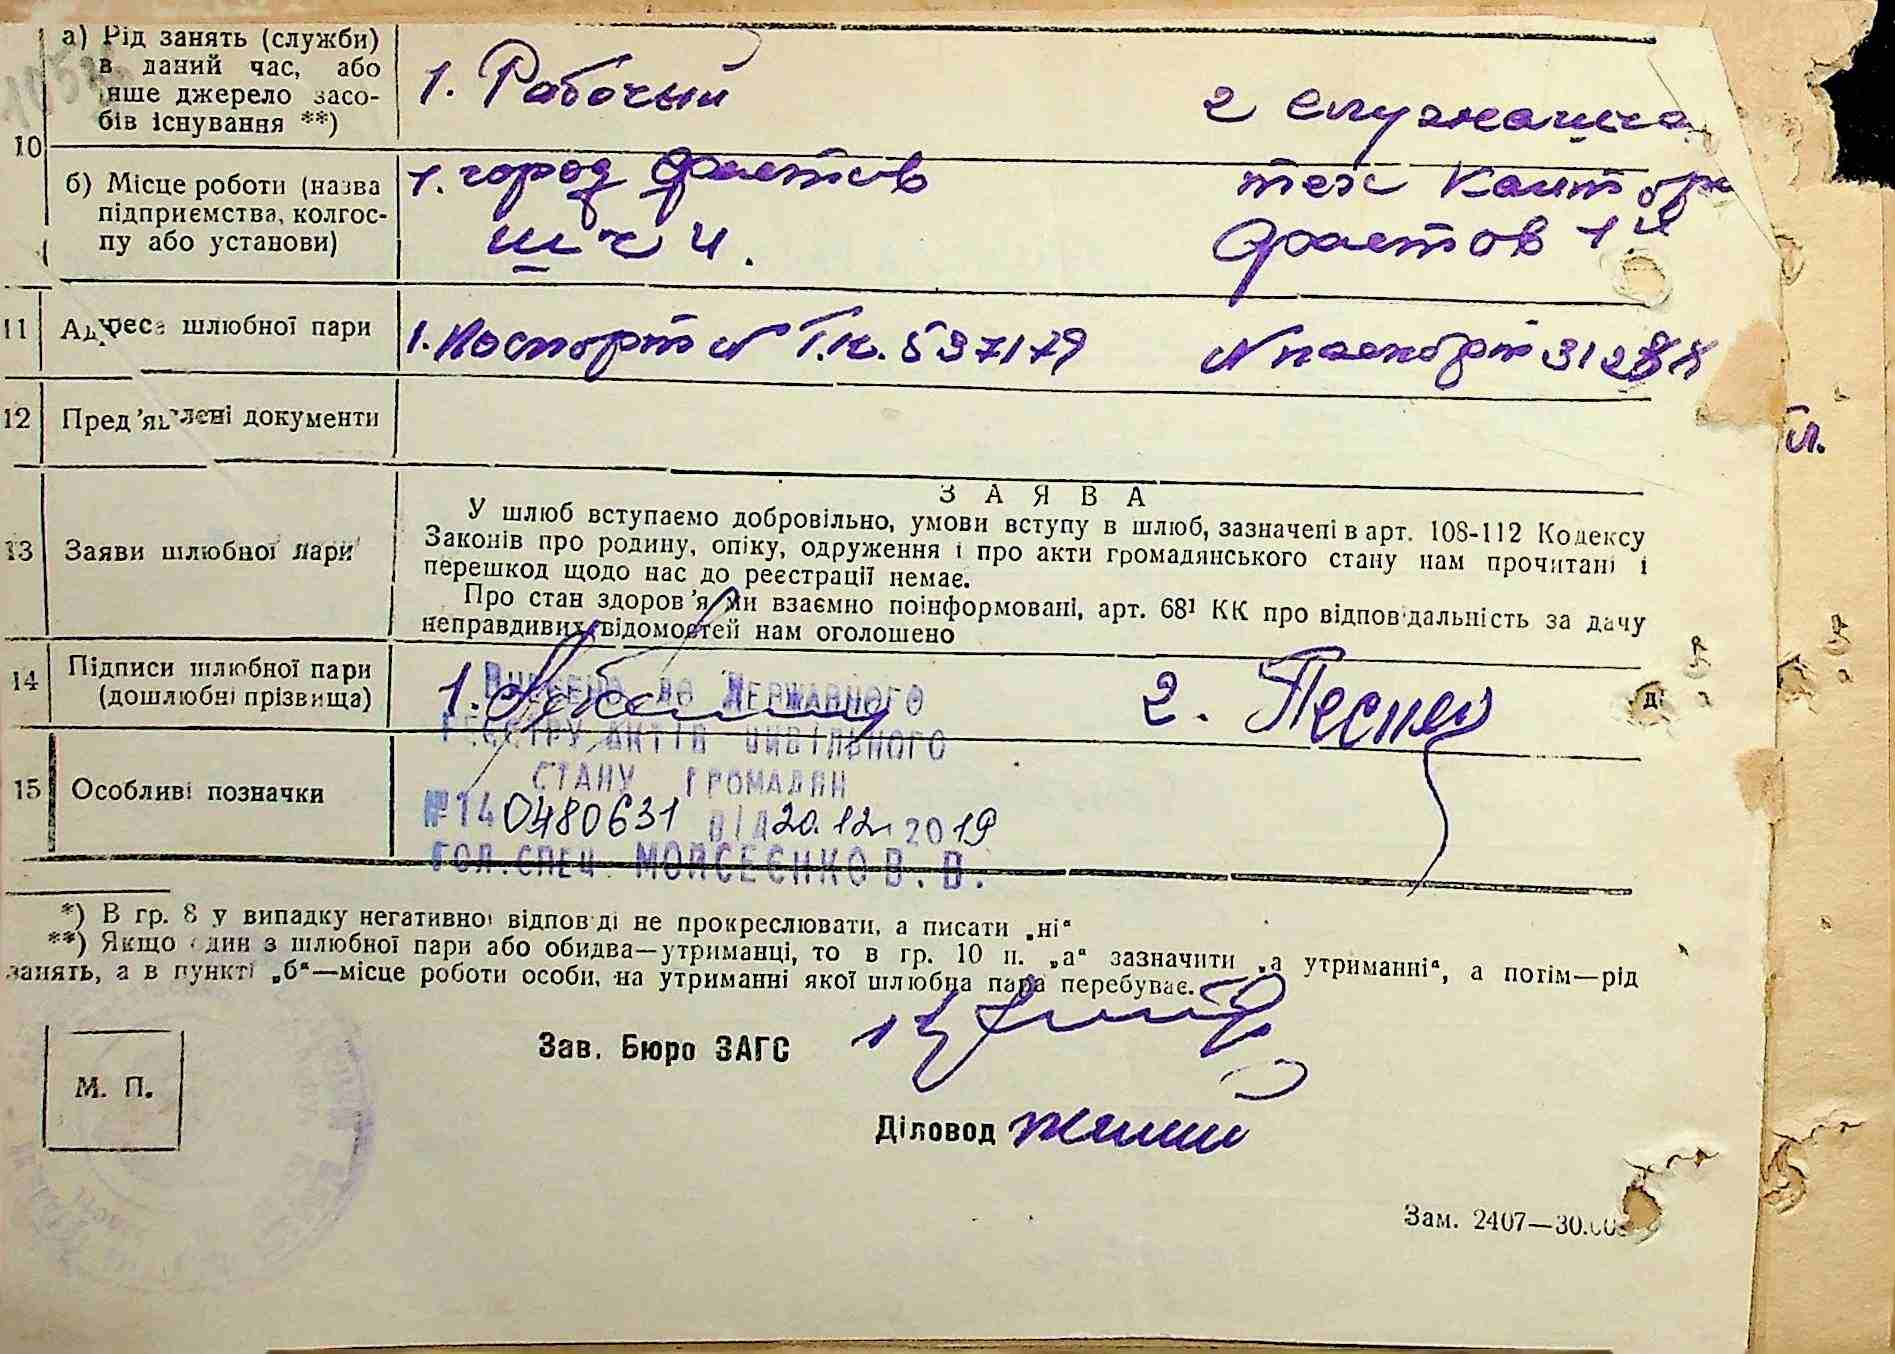 а) Рід занять (служби)
в даний час, або
інше джерело засо-
бів існування **)
1. Рабочый
2 служащая
10
б) Місце роботи (назва
підприємства, колгос-
пу або установи)
1. город Фастов
шч 4.
тех контора
Фастов 1й
11 Адреса шлюбної пари
1. Поспорт N 597179
N паспорт 312
12 Пред'явлені документи
ЗАЯВА
13 Заяви шлюбної пари
У шлюб вступаємо добровільно, умови вступу в шлюб, зазначені в арт. 108-112 Кодексу
Законів про родину, опіку, одруження і про акти громадянського стану нам прочитані і
перешкод щодо нас до реєстрації немає.
Про стан здоров'я ми взаємно поінформовані, арт. 68¹ КК про відповідальність за дачу
неправдивих відомостей нам оголошено
14 Підписи шлюбної пари
(дошлюбні прізвища)
1.
2.
Внесено до Державного
реєстру актів цивільного
стану громадян
№ 140480631 від 20.12. 2019
гол. спец. Мойсеєнко В. В.
15 Особливі позначки
*) В гр. 8 у випадку негативної відповіді не прокреслювати, а писати „ні“
**) Якщо один з шлюбної пари або обидва—утриманці, то в гр. 10 п. „а“ зазначити „а утриманні“, а потім—рід
занять, а в пункті „б“—місце роботи особи, на утриманні якої шлюбна пара перебуває.
Зав. Бюро ЗАГС
М. П.
Діловод
Зам. 2407—30.00